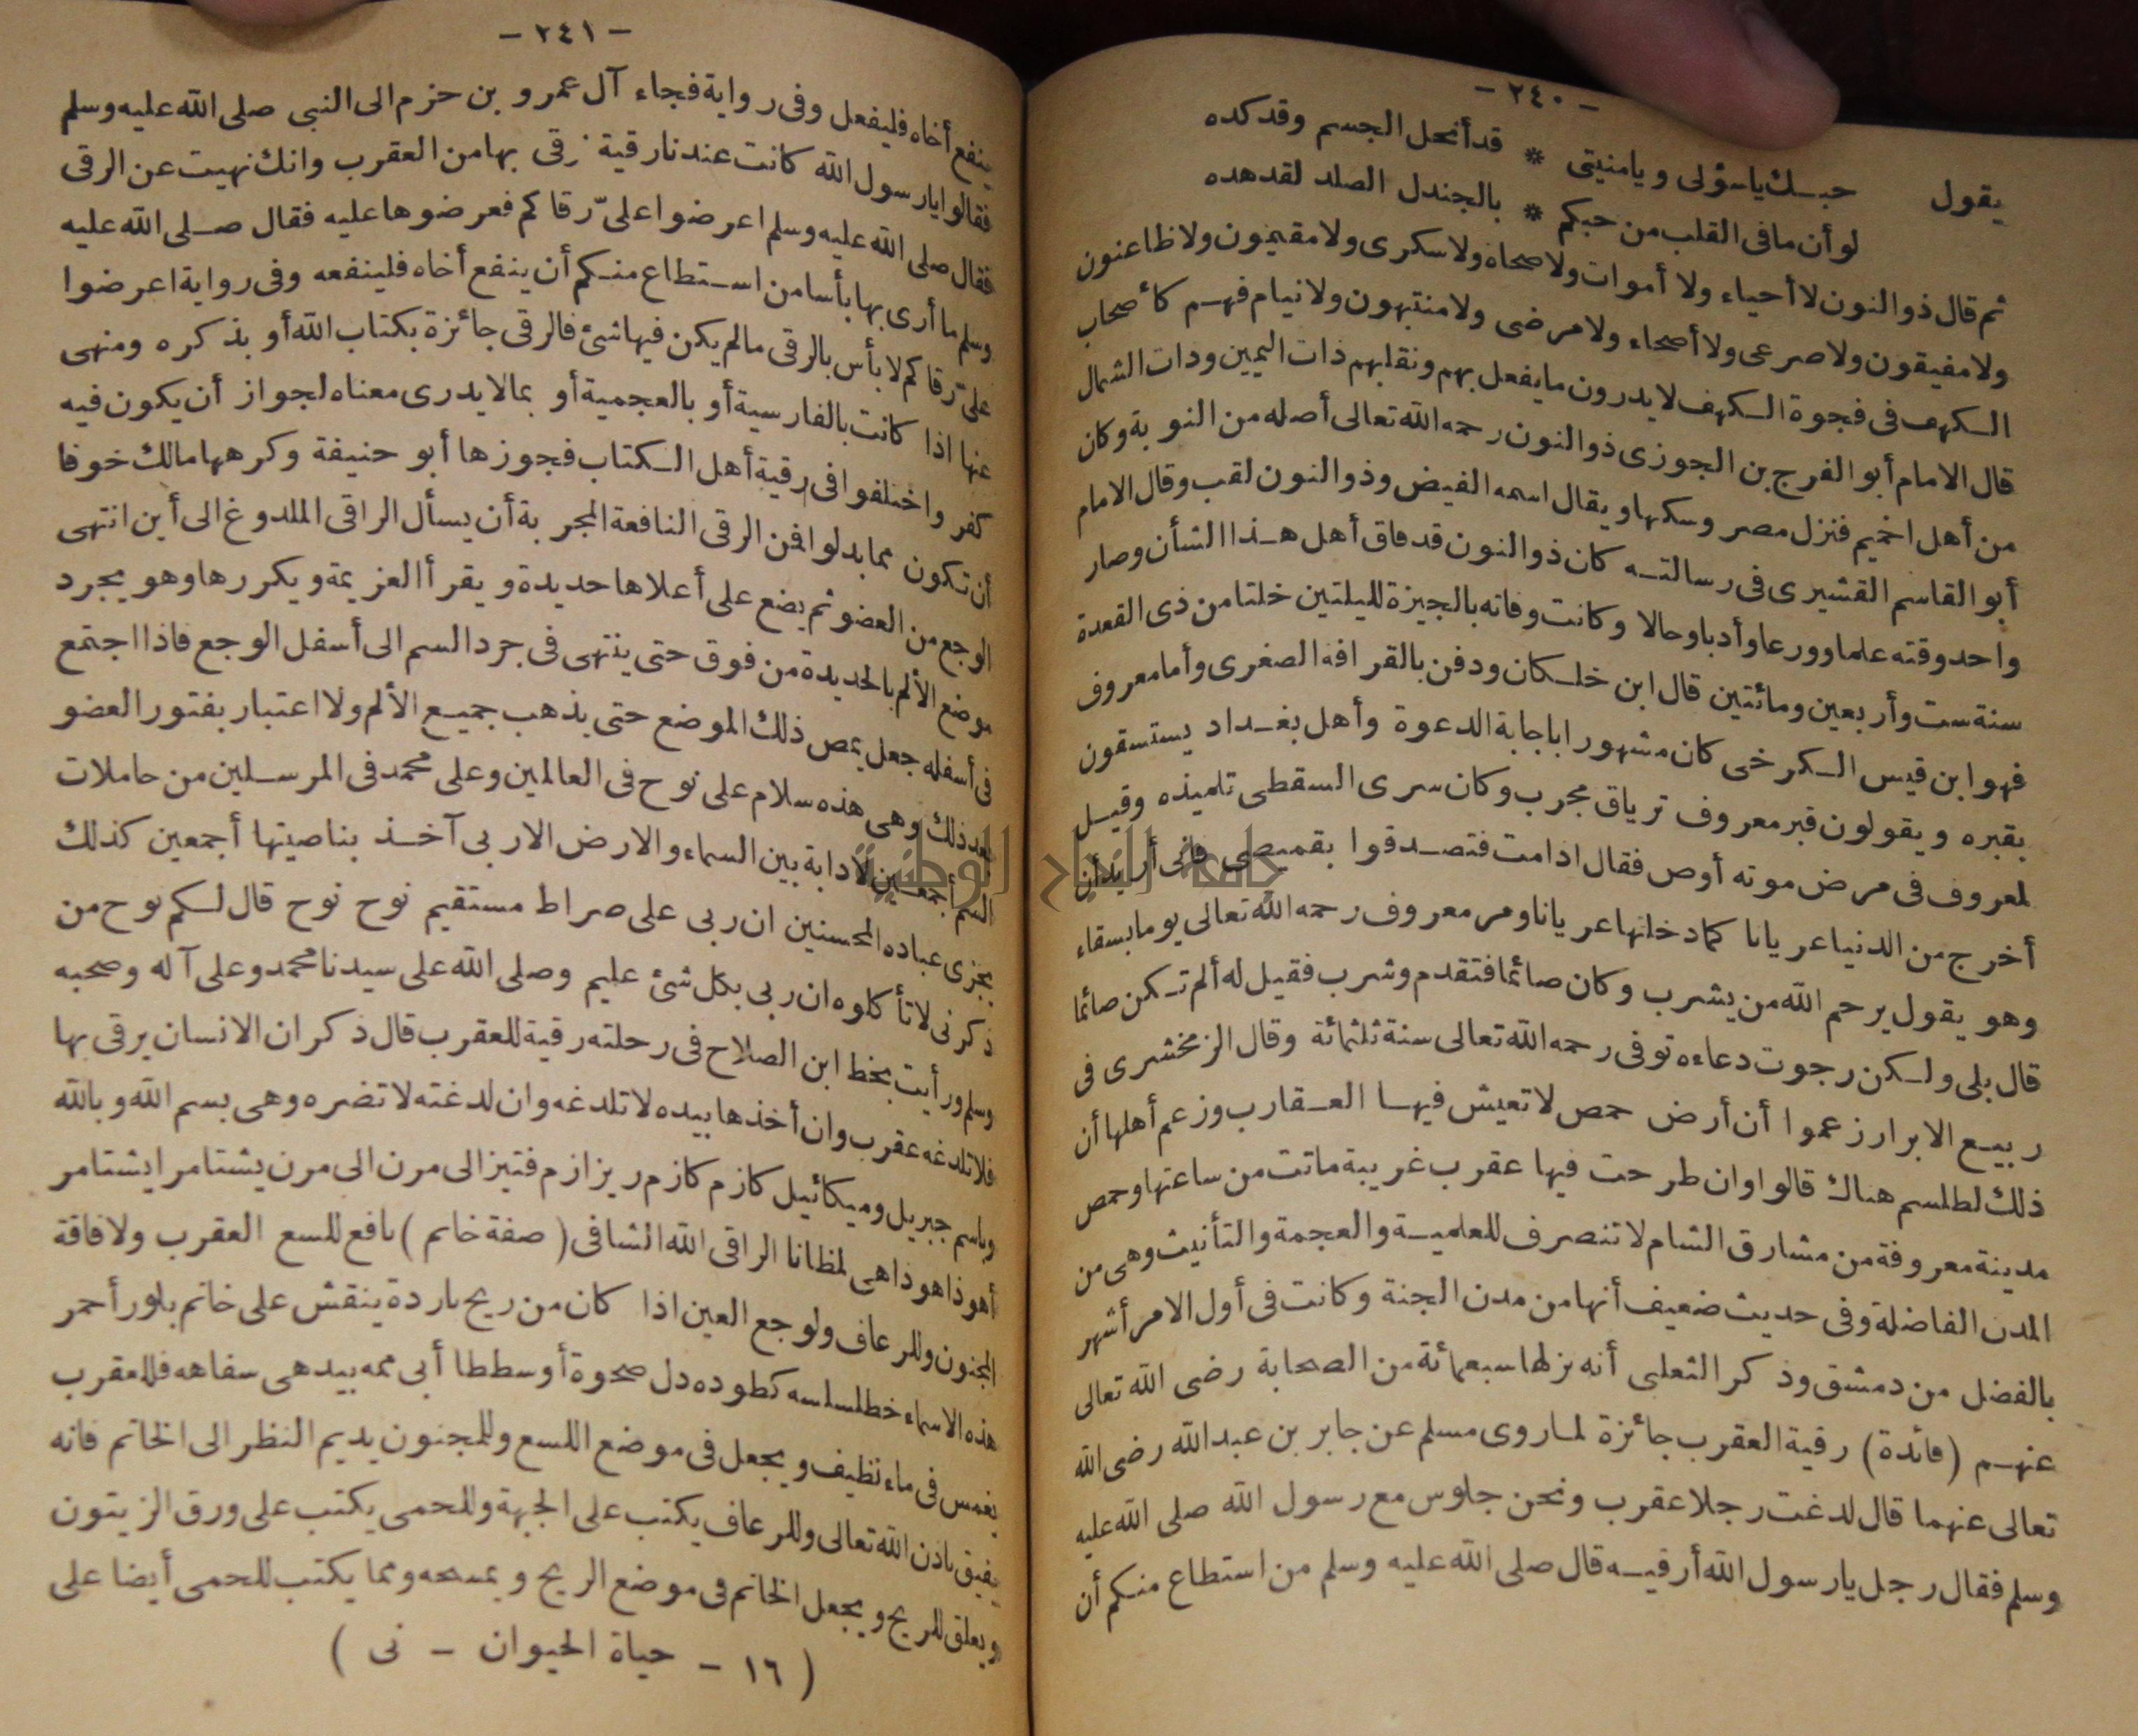 — ٢٤٠ —
يقول حبك ياسؤلى ويامنيتى * قد أنحل الجسم وقد كده
لو أن مافى القلب من حبكم * بالجندل الصلد لقد هده
ثم قال ذو النون لا أحياء ولا أموات ولا صحاة ولا سكرى ولا مقيمون ولا ظاعنون
ولا مفيقون ولا صرعى ولا أصحاء ولا مرضى ولا منتبهون ولا نيام فهم كأصحاب
الكهف فى فجوة الكهف لا يدرون ما يفعل بهم ونقلبهم ذات اليمين وذات الشمال
قال الامام أبو الفرج بن الجوزى ذو النون رحمه الله تعالى أصله من النوبة وكان
من أهل اخميم فنزل مصر وسكنها ويقال اسمه الفيض وذو النون لقب وقال الامام
أبو القاسم القشيرى فى رسالته كان ذو النون قد فاق أهل هذا الشأن وصار
واحد وقته علما وورعا وأدبا وحالا وكانت وفاته بالجيزة لليلتين خلتا من ذى القعدة
سنة ست وأربعين ومائتين قال ابن خلكان ودفن بالقرافة الصغرى وأما معروف
فهو ابن قيس الكرخى كان مشهورا باجابة الدعوة وأهل بغداد يستسقون
بقبره ويقولون قبر معروف ترياق مجرب وكان سرى السقطى تلميذه وقيل
لمعروف فى مرض موته أوص فقال اذا مت فتصدقوا بقميصى فانى أريد أن
أخرج من الدنيا عريانا كما دخلتها عريانا ومر معروف رحمه الله تعالى يوما بسقاء
وهو يقول يرحم الله من يشرب وكان صائما فتقدم وشرب فقيل له ألم تكن صائما
قال بلى ولكن رجوت دعاءه توفى رحمه الله تعالى سنة ثلثمائة وقال الزمخشرى فى
ربيع الابرار زعموا أن أرض حمص لا تعيش فيها العقارب وزعم أهلها أن
ذلك لطلسم هناك قالوا وان طرحت فيها عقرب غريبة ماتت من ساعتها وحمص
مدينة معروفة من مشارق الشام لا تنصرف للعلمية والعجمة والتأنيث وهى من
المدن الفاضلة وفى حديث ضعيف أنها من مدن الجنة وكانت فى أول الامر أشهر
بالفضل من دمشق وذكر الثعلبى أنه نزلها سبعمائة من الصحابة رضى الله تعالى
عنهم (فائدة) رقية العقرب جائزة لما روى مسلم عن جابر بن عبد الله رضى الله
تعالى عنهما قال لدغت رجلا عقرب ونحن جلوس مع رسول الله صلى الله عليه
وسلم فقال رجل يارسول الله أرقيه قال صلى الله عليه وسلم من استطاع منكم أن
— ٢٤١ —
ينفع أخاه فليفعل وفى رواية فجاء آل عمرو بن حزم الى النبى صلى الله عليه وسلم
فقالوا يارسول الله كانت عندنا رقية نرقى بها من العقرب وانك نهيت عن الرقى
فقال صلى الله عليه وسلم اعرضوا علىّ رقاكم فعرضوها عليه فقال صلى الله عليه
وسلم ما أرى بها بأسا من استطاع منكم أن ينفع أخاه فلينفعه وفى رواية اعرضوا
علىّ رقاكم لا بأس بالرقى مالم يكن فيها شئ فالرقى جائزة بكتاب الله أو بذكره ومنهى
عنها اذا كانت بالفارسية أو بالعجمية أو بمالا يدرى معناه لجواز أن يكون فيه
كفر واختلفوا فى رقية أهل الكتاب فجوزها أبو حنيفة وكرهها مالك خوفا
أن تكون مما بدلوا فمن الرقى النافعة المجربة أن يسأل الراقى الملدوغ الى أين انتهى
الوجع من العضو ثم يضع على أعلاها حديدة ويقرأ العزيمة ويكررها وهو يجرد
موضع الألم بالحديدة من فوق حتى ينتهى فى جرد السم الى أسفل الوجع فاذا اجتمع
فى أسفله جعل يمص ذلك الموضع حتى يذهب جميع الألم ولا اعتبار بفتور العضو
بعد ذلك وهى هذه سلام على نوح فى العالمين وعلى محمد فى المرسلين من حاملات
السم أجمعين لا دابة بين السماء والارض الا ربى آخذ بناصيتها أجمعين كذلك
يجزى عباده المحسنين ان ربى على صراط مستقيم نوح نوح قال لكم نوح من
ذكرنى لا تأكلوه ان ربى بكل شئ عليم وصلى الله على سيدنا محمد وعلى آله وصحبه
وسلم ورأيت بخط ابن الصلاح فى رحلته رقية للعقرب قال ذكر ان الانسان يرقى بها
فلا تلدغه عقرب وان أخذها بيده لا تلدغه وان لدغته لا تضره وهى بسم الله وبالله
وباسم جبريل وميكائيل كازم كازم ريزازم فتيز الى مرن الى مرن يشتامرا يشتامر
أهوذا هوذا هى لمظا انا الراقى الله الشافى (صفة خاتم) نافع للسع العقرب ولافاقة
المجنون وللرعاف ولوجع العين اذا كان من ريح باردة ينقش على خاتم بلور أحمر
هذه الاسماء خطلسلسه كطوده دل صحوة أوسططا أبى ممه بيدهى سفاهه فللعقرب
يغمس فى ماء نظيف ويجعل فى موضع اللسع وللمجنون يديم النظر الى الخاتم فانه
يفيق باذن الله تعالى وللرعاف يكتب على الجبهة وللحمى يكتب على ورق الزيتون
ويعلق للريح ويجعل الخاتم فى موضع الريح ويمسحه ومما يكتب للحمى أيضا على
(١٦ — حياة الحيوان — نى)
جامعة النجاح الوطنية